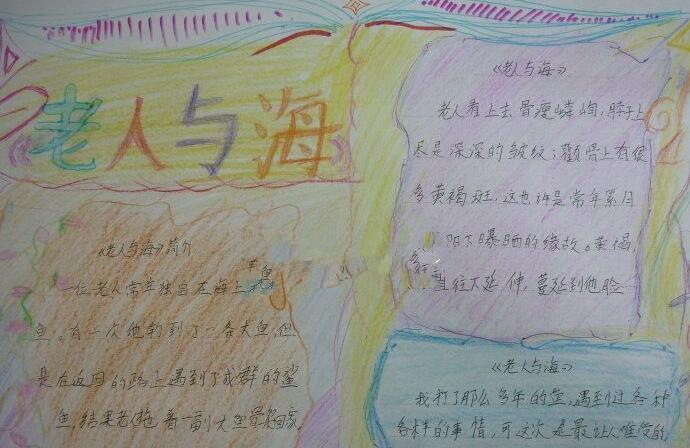 《老人与海》
《老人与海》简介
一位老人常年独自在海上捕鱼
鱼。有一次他钓到了一条大鱼,但
是在返回的路上遇到了成群的鲨
鱼,结果老拖着一副大鱼骨架回家。
《老人与海》
老人看上去骨瘦嶙峋,脖子上
尽是深深的皱纹;颧骨上有很
多黄褐斑,这也许是常年累月
阳下曝晒的缘故。黄褐
往下延伸,蔓延到他脸…
《老人与海》
我打了那么多年的鱼,遇到过各种
各样的事情,可这次是最让人难受的